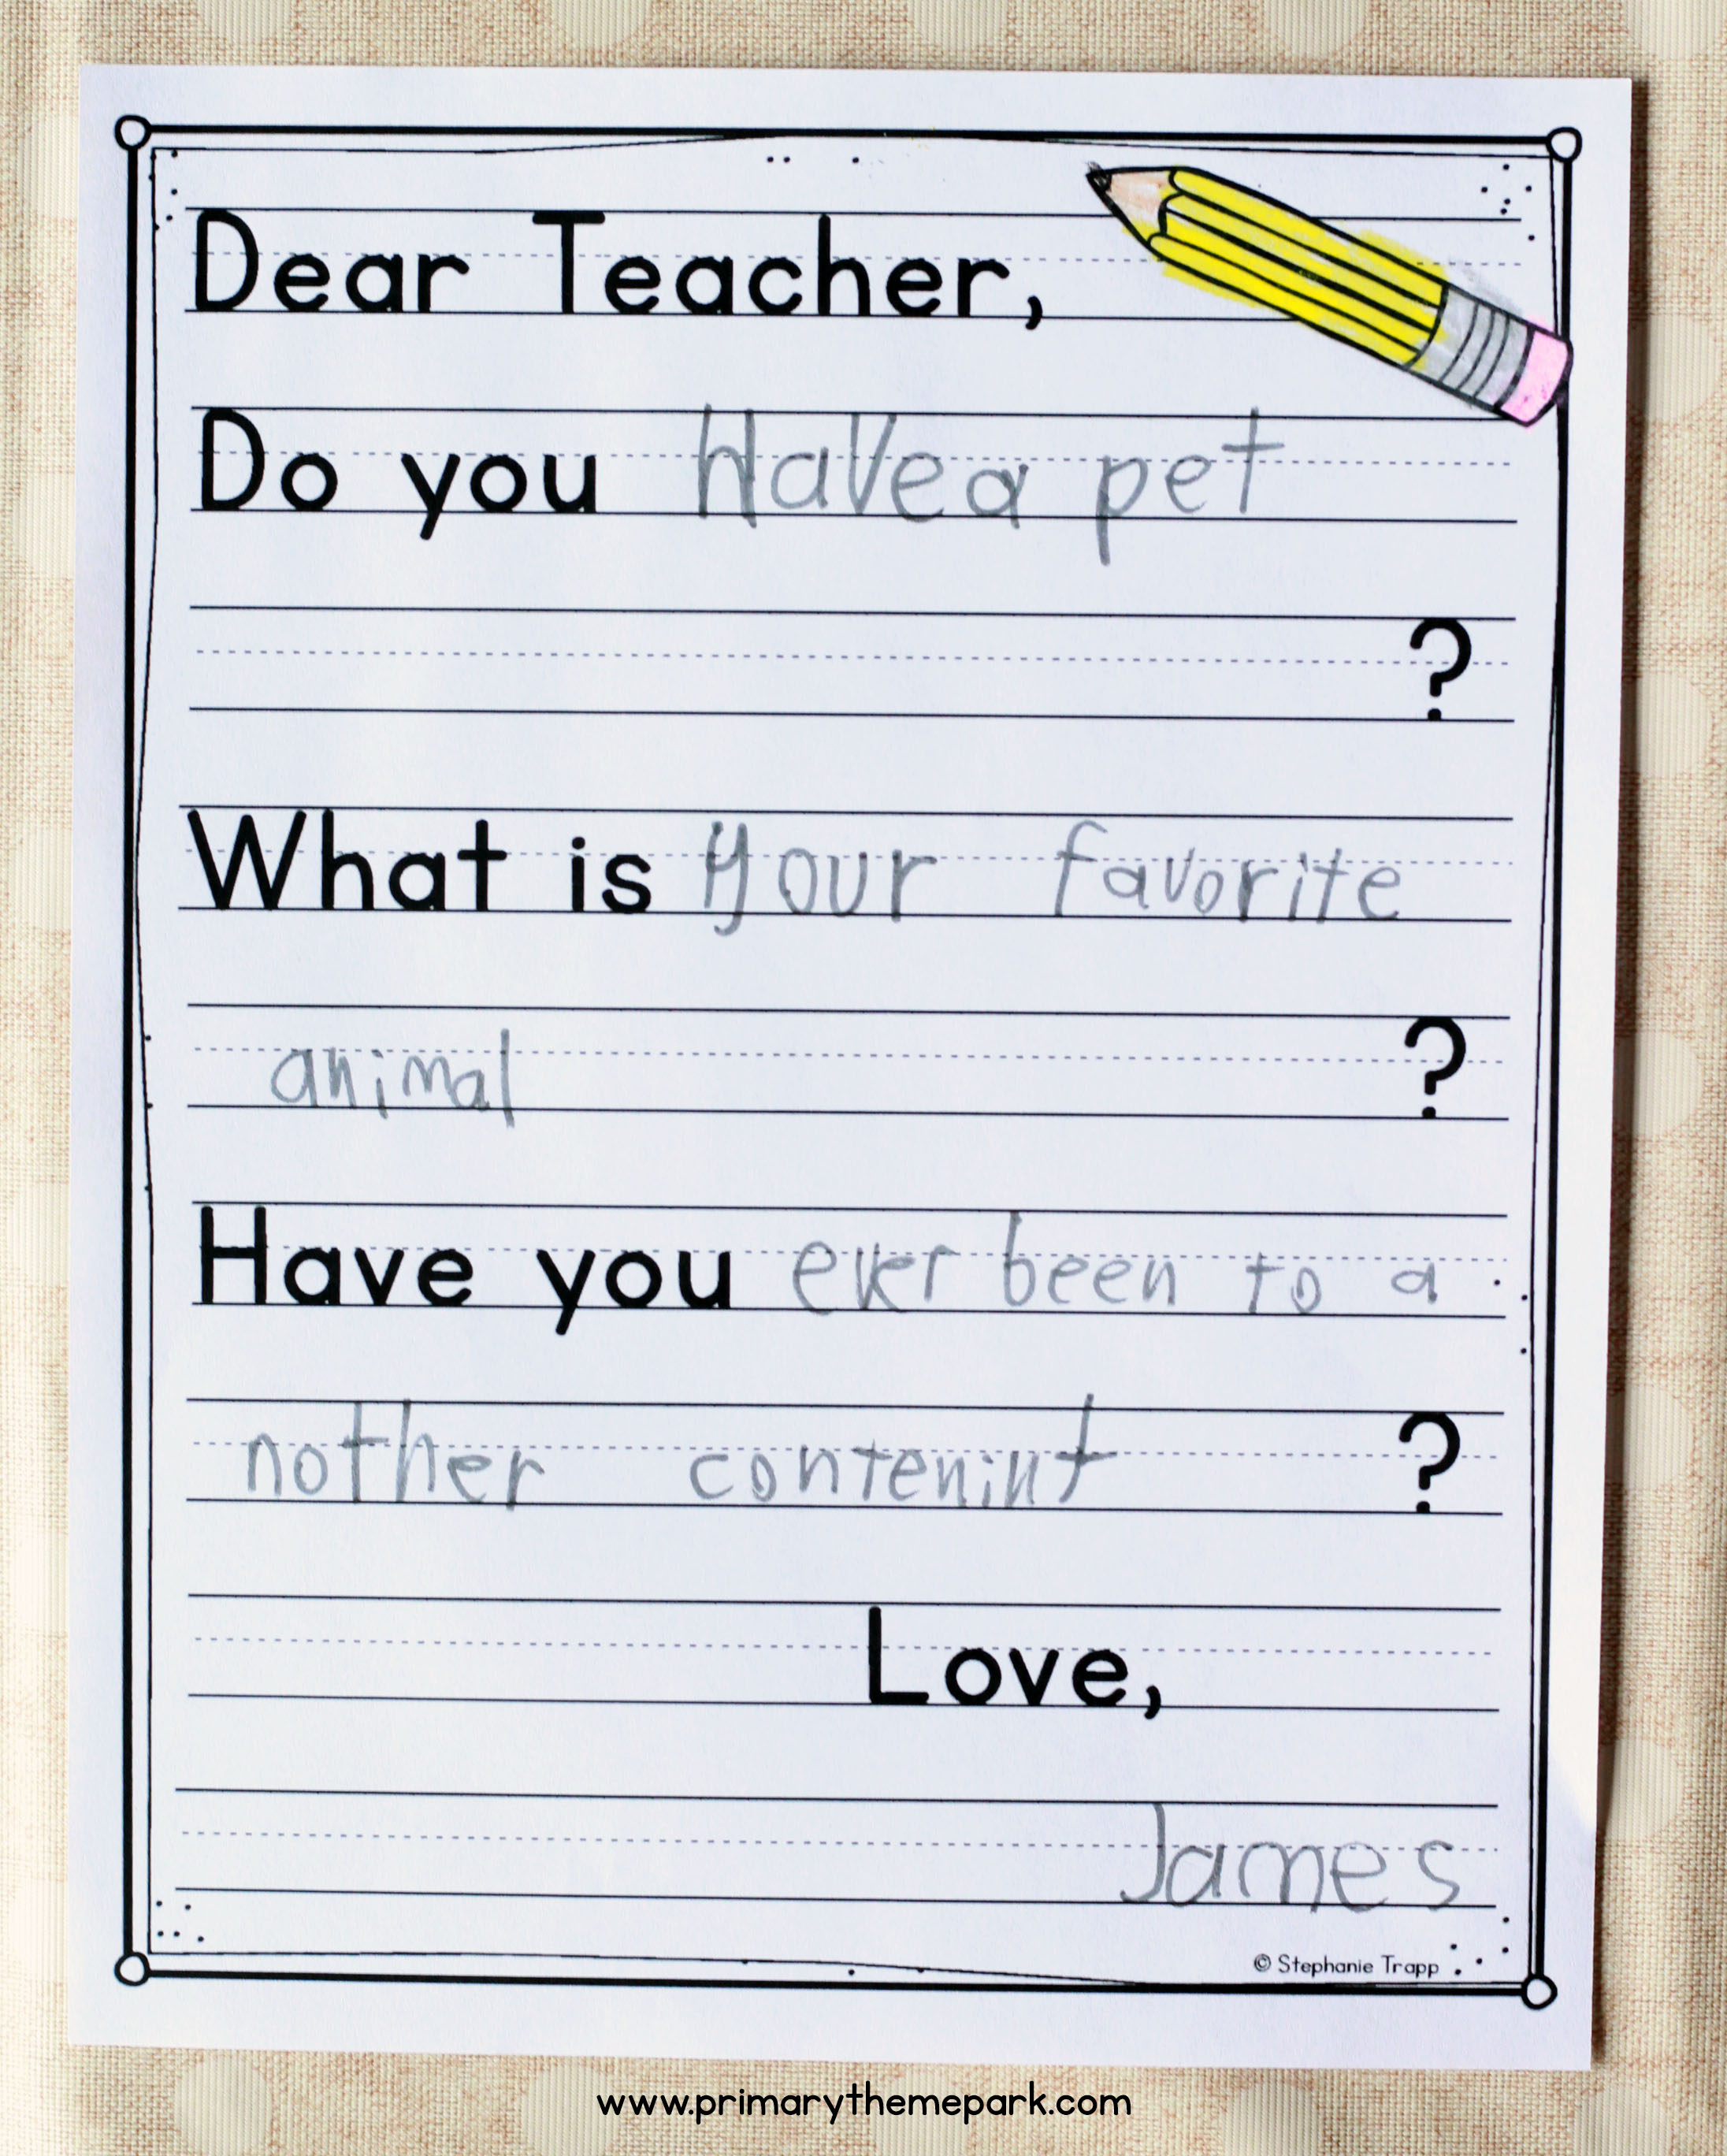 Dear Teacher,
Do you Have a pet
?
What is your favorite
animal ?
Have you ever been to a
nother contenint ?
Love,
James
© Stephanie Trapp
www.primarythemepark.com